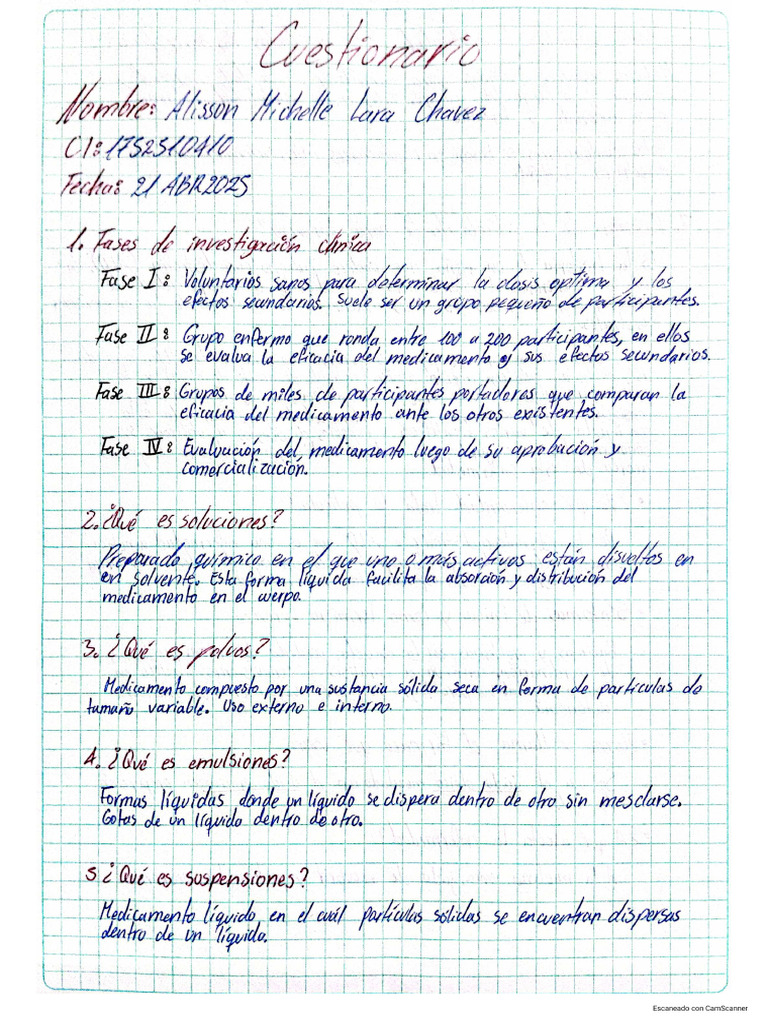 Cuestionario
Nombre: Alisson Michelle Lara Chavez
CI: 1752510410
Fecha: 21 ABR 2025
1. Fases de investigación clínica
Fase I: Voluntarios sanos para determinar la dosis optima y los
efectos secundarios. Suele ser un grupo pequeño de participantes.
Fase II: Grupo enfermo que ronda entre 100 a 200 participantes, en ellos
se evalua la eficacia del medicamento y sus efectos secundarios.
Fase III: Grupos de miles de participantes portadores que comparan la
eficacia del medicamento ante los otros existentes.
Fase IV: Evaluación del medicamento luego de su aprobación y
comercialización.
2. ¿Qué es soluciones?
Preparado químico en el que uno o más activos están disueltos en
en solvente. Esta forma líquida facilita la absorción y distribución del
medicamento en el cuerpo.
3. ¿Qué es polvos?
Medicamento compuesto por una sustancia sólida seca en forma de partículas de
tamaño variable. Uso externo e interno.
4. ¿Qué es emulsiones?
Formas líquidas donde un líquido se dispera dentro de otro sin mesclarse.
Gotas de un líquido dentro de otro.
5 ¿Qué es suspensiones?
Medicamento líquido en el cuál partículas sólidas se encuentran dispersas
dentro de un líquido.
Escaneado con CamScanner